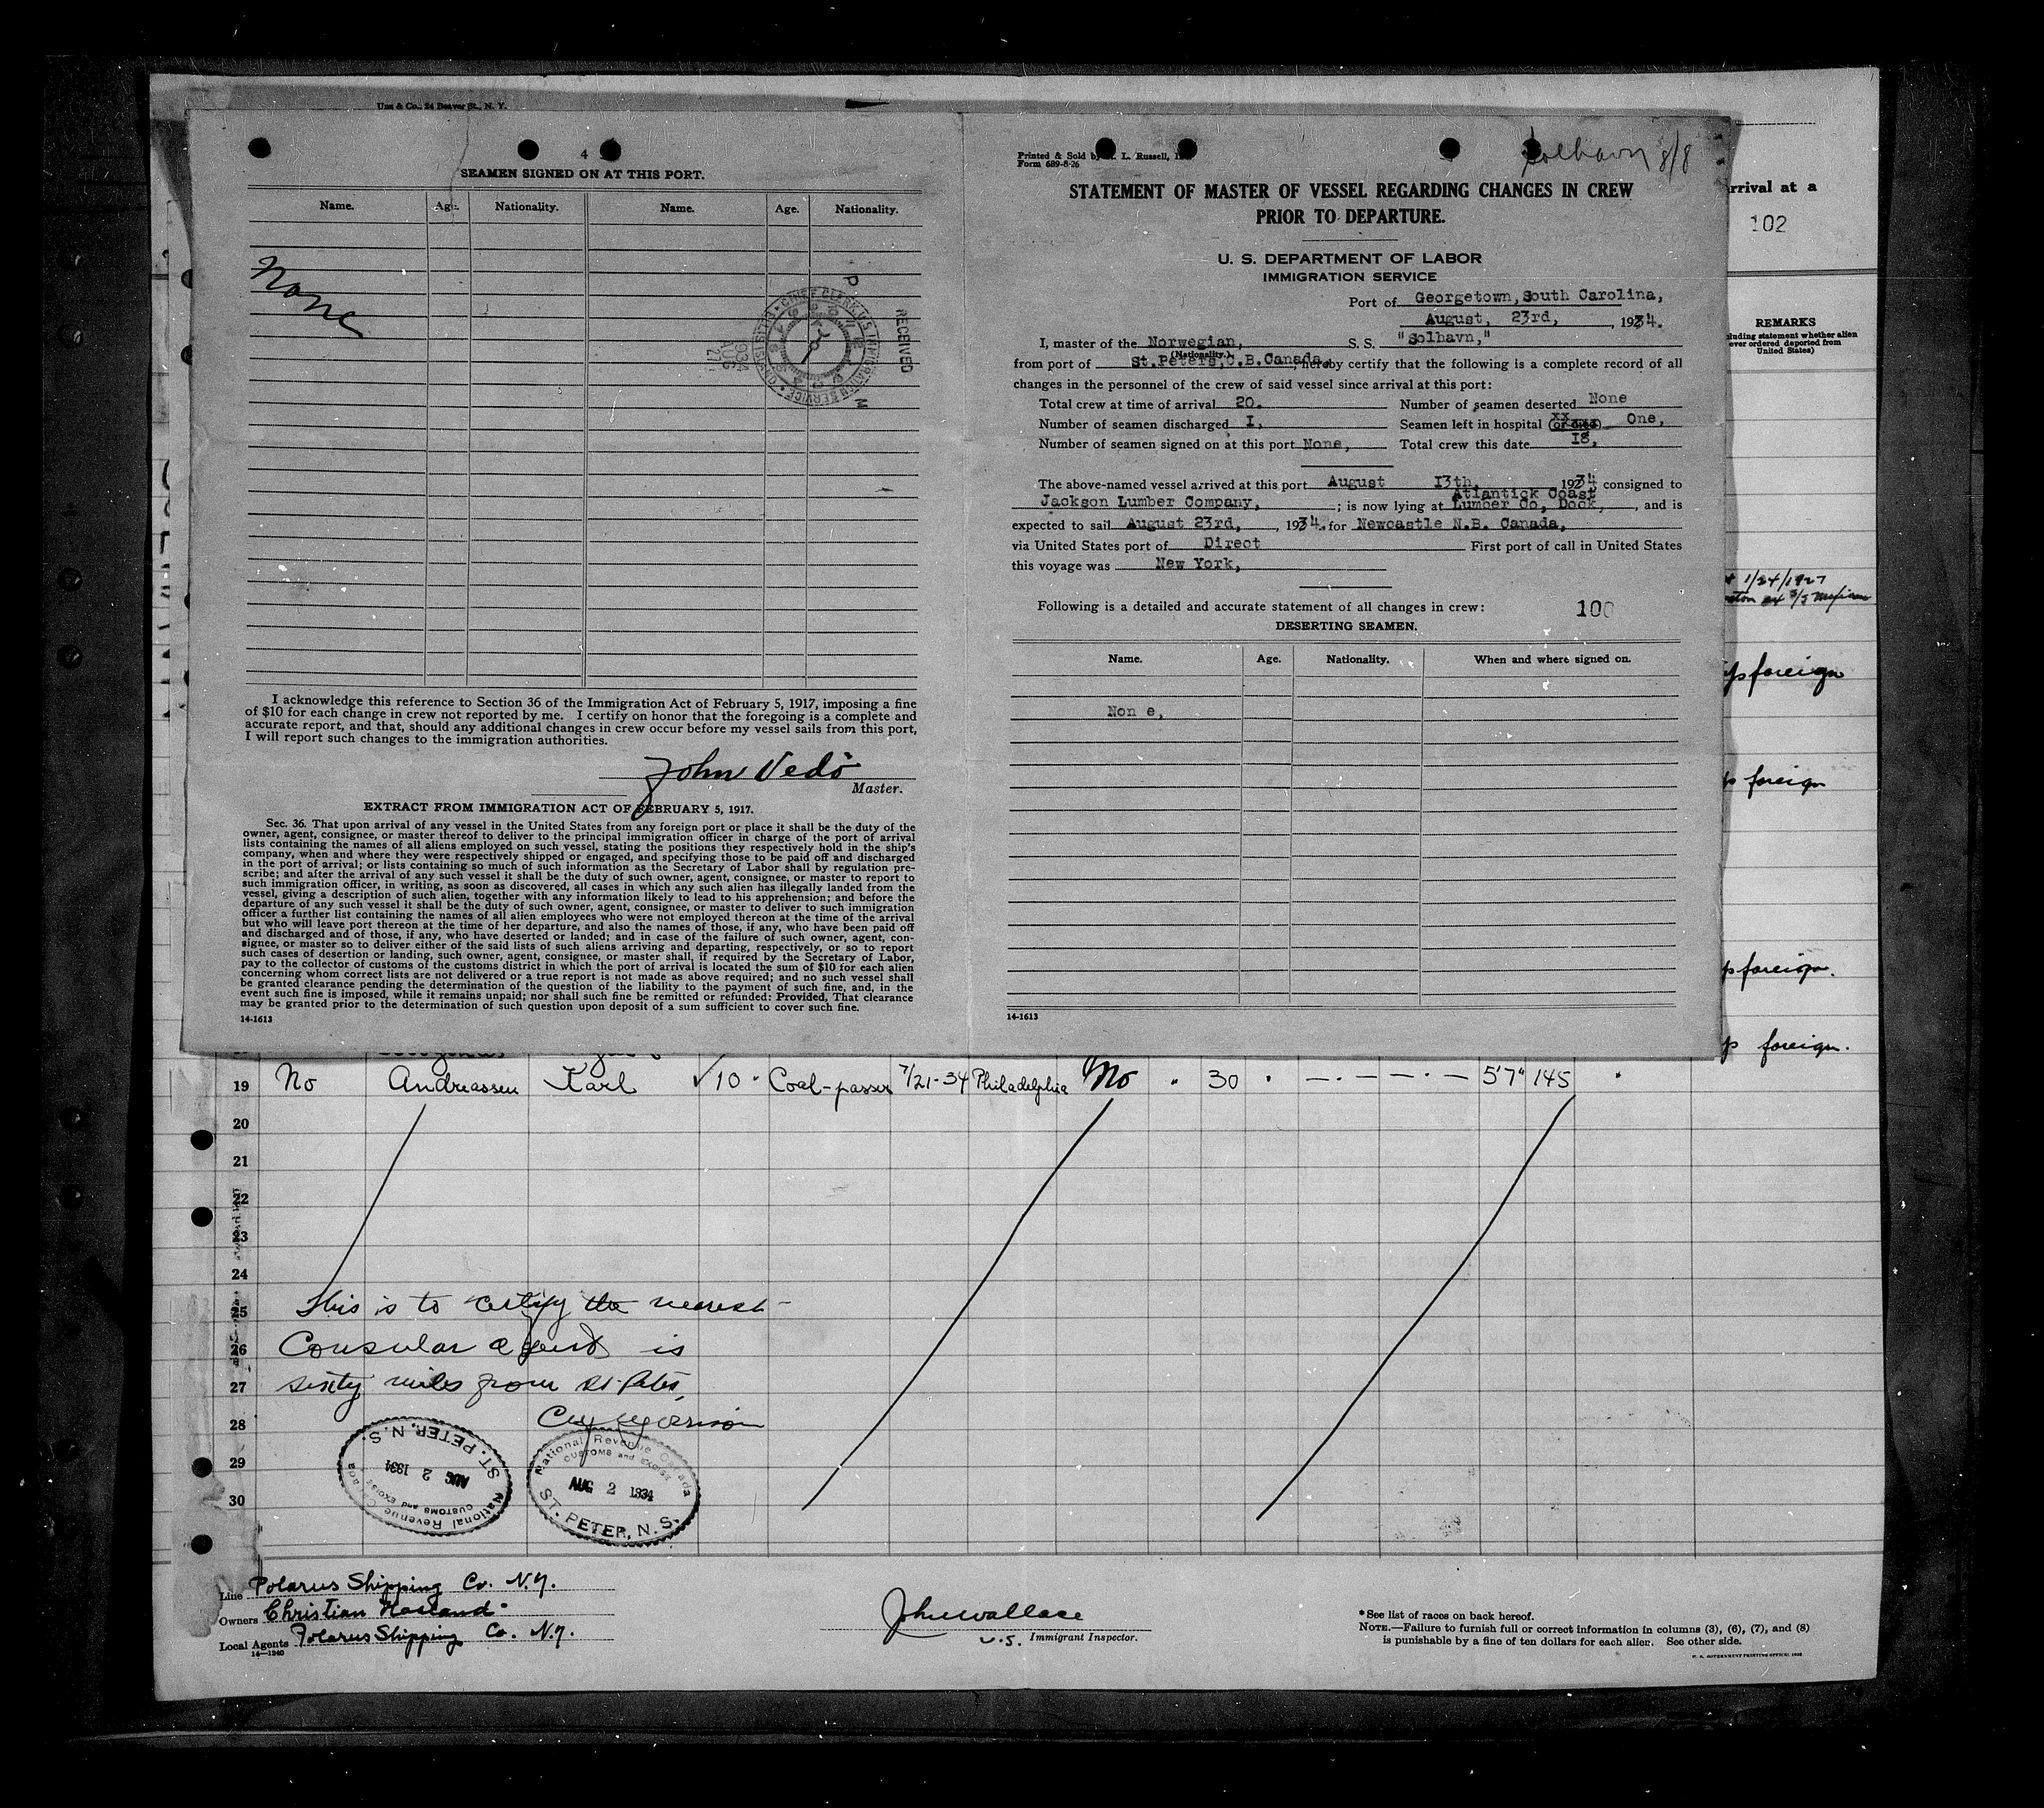 Unz & Co., 24 Beaver St., N. Y.
4
SEAMEN SIGNED ON AT THIS PORT.
Name. Age. Nationality. Name. Age. Nationality.
None
RECEIVED
CHIEF CLERK, U.S. IMMIGRATION SERVICE
1934 AUG 27
P M
I acknowledge this reference to Section 36 of the Immigration Act of February 5, 1917, imposing a fine
of $10 for each change in crew not reported by me. I certify on honor that the foregoing is a complete and
accurate report, and that, should any additional changes in crew occur before my vessel sails from this port,
I will report such changes to the immigration authorities.
John Vedö
Master.
EXTRACT FROM IMMIGRATION ACT OF FEBRUARY 5, 1917.
Sec. 36. That upon arrival of any vessel in the United States from any foreign port or place it shall be the duty of the
owner, agent, consignee, or master thereof to deliver to the principal immigration officer in charge of the port of arrival
lists containing the names of all aliens employed on such vessel, stating the positions they respectively hold in the ship's
company, when and where they were respectively shipped or engaged, and specifying those to be paid off and discharged
in the port of arrival; or lists containing so much of such information as the Secretary of Labor shall by regulation pre-
scribe; and after the arrival of any such vessel it shall be the duty of such owner, agent, consignee, or master to report to
such immigration officer, in writing, as soon as discovered, all cases in which any such alien has illegally landed from the
vessel, giving a description of such alien, together with any information likely to lead to his apprehension; and before the
departure of any such vessel it shall be the duty of such owner, agent, consignee, or master to deliver to such immigration
officer a further list containing the names of all alien employees who were not employed thereon at the time of the arrival
but who will leave port thereon at the time of her departure, and also the names of those, if any, who have been paid off
and discharged and of those, if any, who have deserted or landed; and in case of the failure of such owner, agent, con-
signee, or master so to deliver either of the said lists of such aliens arriving and departing, respectively, or so to report
such cases of desertion or landing, such owner, agent, consignee, or master shall, if required by the Secretary of Labor,
pay to the collector of customs of the customs district in which the port of arrival is located the sum of $10 for each alien
concerning whom correct lists are not delivered or a true report is not made as above required; and no such vessel shall
be granted clearance pending the determination of the question of the liability to the payment of such fine, and, in the
event such fine is imposed, while it remains unpaid; nor shall such fine be remitted or refunded: Provided, That clearance
may be granted prior to the determination of such question upon deposit of a sum sufficient to cover such fine.
14-1613
Printed & Sold by L. Russell,
Form 689-8-26
Solhavn 8/8
STATEMENT OF MASTER OF VESSEL REGARDING CHANGES IN CREW
PRIOR TO DEPARTURE.
U. S. DEPARTMENT OF LABOR
IMMIGRATION SERVICE
Port of Georgetown, South Carolina,
August, 23rd, , 1934.
I, master of the Norwegian, S. S. "Solhavn,"
(Nationality.)
from port of St.Peters, C.B.Canada, hereby certify that the following is a complete record of all
changes in the personnel of the crew of said vessel since arrival at this port:
Total crew at time of arrival 20. Number of seamen deserted None
Number of seamen discharged I, Seamen left in hospital (or died) xx One,
Number of seamen signed on at this port None, Total crew this date I8,
The above-named vessel arrived at this port August I3th, 1934 consigned to
Jackson Lumber Company, ; is now lying at Atlantick Coast Lumber Co, Dock, , and is
expected to sail August 23rd, , 1934. for Newcastle N.B. Canada,
via United States port of Direct First port of call in United States
this voyage was New York,
Following is a detailed and accurate statement of all changes in crew: 100
DESERTING SEAMEN.
Name. Age. Nationality. When and where signed on.
Non e,
14-1613
rrival at a
102
REMARKS
cluding statement whether alien
ever ordered deported from
United States)
1/24/1927
foreign
foreign
foreign.
foreign.
19 No Andreassen Karl √10 Coal-passer 7/21-34 Philadelphia No " 30 " — — — — 5'7" 145
20
21
22
23
24
25
26
27
28
29
30
This is to certify the nearest
Consular agent is
sixty miles from St. Peters,
National Revenue Canada
CUSTOMS and EXCISE
AUG 2 1934
ST. PETER, N.S.
National Revenue Canada
CUSTOMS and EXCISE
AUG 2 1934
ST. PETER, N.S.
Line Polarus Shipping Co. N.Y.
Owners Christian Haaland
Local Agents Polarus Shipping Co. N.Y.
14—1240
John Wallace
U.S. Immigrant Inspector.
*See list of races on back hereof.
NOTE.—Failure to furnish full or correct information in columns (3), (6), (7), and (8)
is punishable by a fine of ten dollars for each alien. See other side.
U. S. GOVERNMENT PRINTING OFFICE: